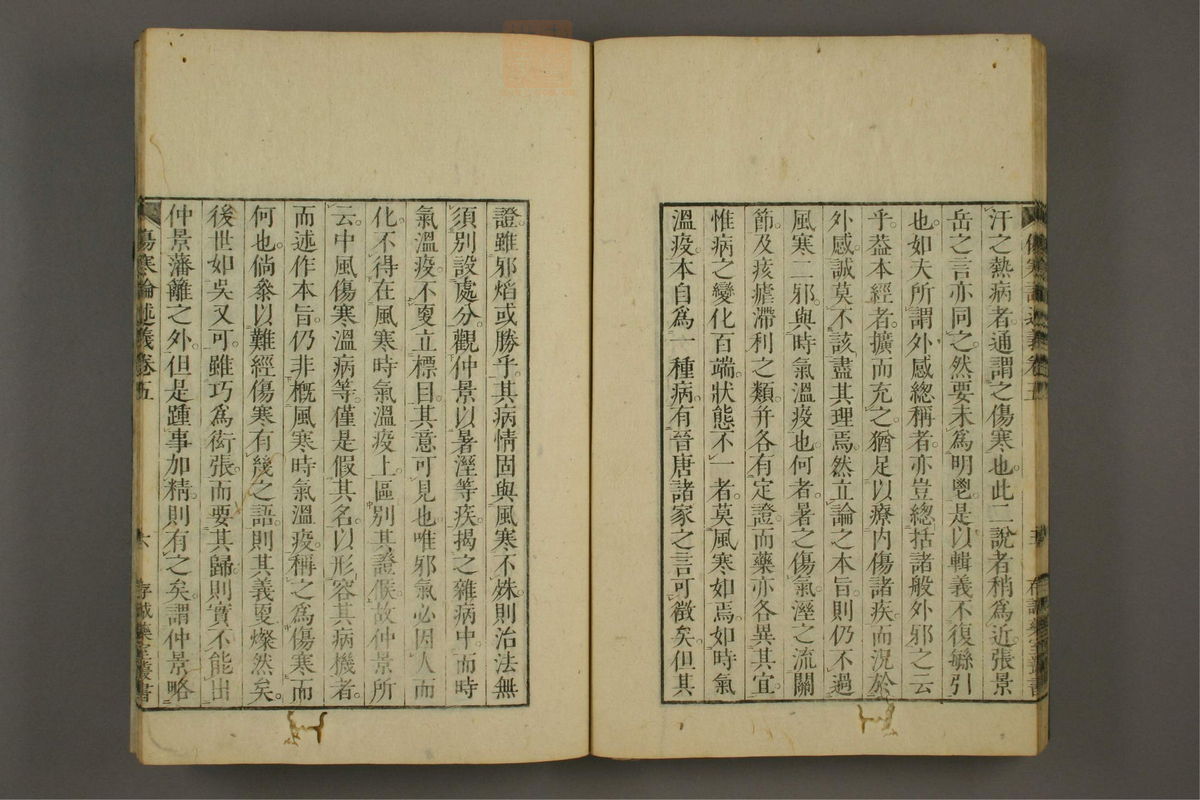 汗之熱病者通謂之傷寒也。此二說者稍爲近。張景
岳之言亦同之。然要未爲明鬯。是以輯義不復繇引
也。如夫所謂外感總稱者。亦豈總括諸般外邪之云
乎。葢本經者。擴而充之。猶足以療內傷諸疾。而況於
外感。誠莫不該盡其理焉。然立論之本旨。則仍不過
風寒二邪。與時氣溫疫也。何者。暑之傷氣。溼之流關
節。及痎瘧滯利之類。幷各有定證。而藥亦各異其宜。
惟病之變化百端。狀態不一者。莫風寒如焉。如時氣
溫疫。本自爲一種病。有晉唐諸家之言可徵矣。但其
傷寒論述義卷五
五
存誠藥室叢書
證雖邪焰或勝乎。其病情固與風寒不殊。則治法無
須別設處分。觀仲景以暑溼等疾。揭之雜病中。而時
氣溫疫。不更立標目。其意可見也。唯邪氣必因人而
化。不得在風寒時氣溫疫上。區別其證候。故仲景所
云。中風傷寒溫病等。僅是假其名。以形容其病機者。
而述作本旨。仍非槪風寒時氣溫疫。稱之爲傷寒而
何也。倘叅以難經傷寒有幾之語。則其義更燦然矣。
後世如吳又可。雖巧爲衒張。而要其歸則實不能出
仲景藩籬之外。但是踵事加精。則有之矣。謂仲景略
傷寒論述義卷五
六
存誠藥室叢書